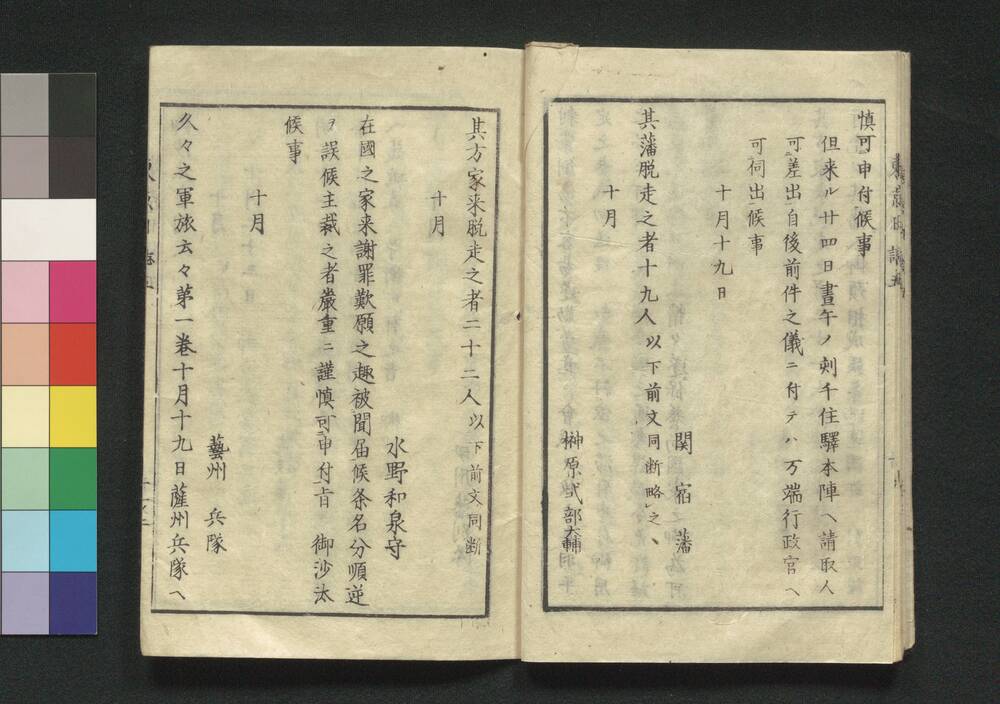 慎可申付候事
但来ル廿四日晝午ノ刻千住驛本陣ヘ請取人
可差出自後前件之儀ニ付テハ万端行政官ヘ
可伺出候事
十月十九日
関宿藩
其藩脱走之者十九人以下前文同断略之、
十月
榊原式部大輔
其方家来脱走之者二十二人以下前文同断
十月
水野和泉守
在國之家来謝罪歎願之趣被聞届候条名分順逆
ヲ誤候主裁之者嚴重ニ謹慎可申付旨御沙汰
候事
十月
藝州兵隊
久々之軍旅云々第一巻十月十九日薩州兵隊ヘ